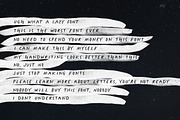 UGH WHAT A LAZY FONT
THIS IS THE WORST FONT EVER
NO NEED TO SPEND YOUR MONEY ON THIS FONT
I CAN MAKE THIS BY MYSELF
MY HANDWRITING LOOKS BETTER THAN THIS
NO, JUST NO
JUST STOP MAKING FONTS
PLEASE LEARN MORE ABOUT LETTERS, YOU'RE NOT READY
NOBODY WILL BUY THIS FONT, NOBODY
I DON'T UNDERSTAND